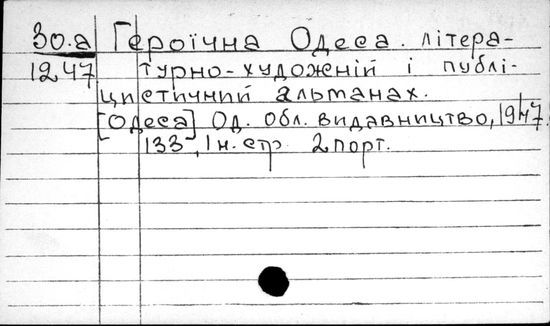 30.a Героїчна Одеса. літера-
1247 турно-художній і публі-
цистичний альманах.
[Одеса] Од. обл. видавництво, 1947.
133, 1 н. стр. 2 порт.